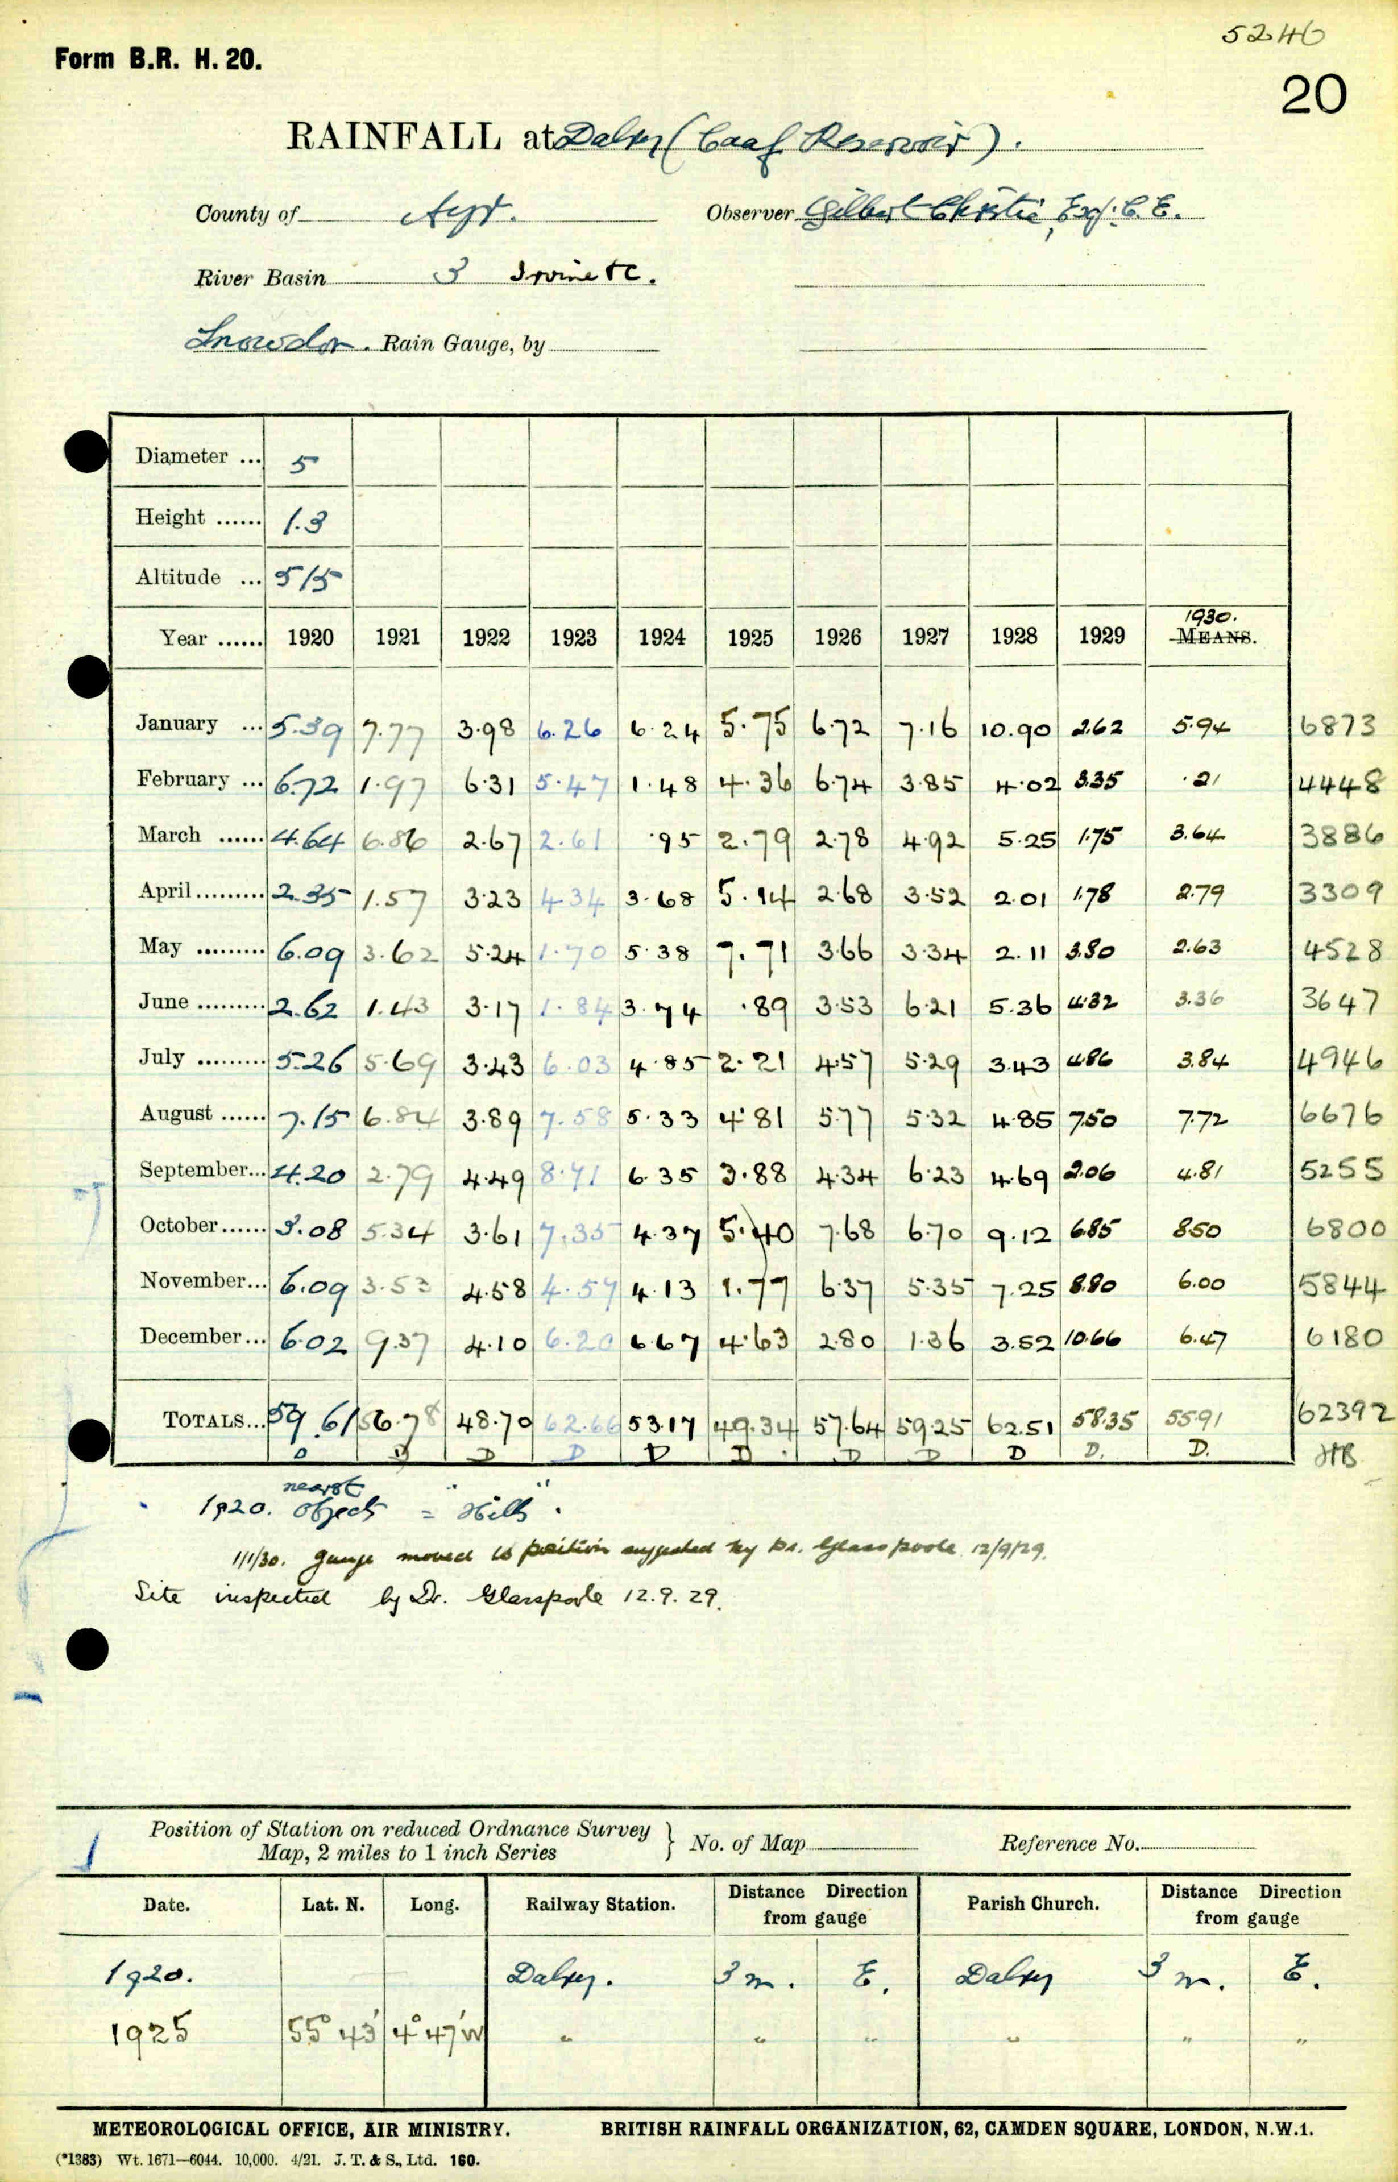 5246
Form B.R. H. 20.
20
RAINFALL at Dalry (Caaf Reservoir).
County of Ayr. Observer Gilbert Christie, Esq: C. E.
River Basin 3 Irvine &c.
Snowdon. Rain Gauge, by
Diameter ... 5
Height ...... 1.3
Altitude ... 515
Year ...... 1920 1921 1922 1923 1924 1925 1926 1927 1928 1929 1930. MEANS.
January ... 5.39 7.77 3.98 6.26 6.24 5.75 6.72 7.16 10.90 2.62 5.94 6873
February ... 6.72 1.97 6.31 5.47 1.48 4.36 6.74 3.85 4.02 3.35 .21 4448
March ...... 4.64 6.86 2.67 2.61 .95 2.79 2.78 4.92 5.25 1.75 3.64 3886
April ......... 2.35 1.57 3.23 4.34 3.68 5.14 2.68 3.52 2.01 1.78 2.79 3309
May ......... 6.09 3.62 5.24 1.70 5.38 7.71 3.66 3.34 2.11 3.80 2.63 4528
June ......... 2.62 1.43 3.17 1.84 3.74 .89 3.53 6.21 5.36 4.32 3.36 3647
July ......... 5.26 5.69 3.43 6.03 4.85 2.21 4.57 5.29 3.43 4.86 3.84 4946
August ...... 7.15 6.84 3.89 7.58 5.33 4.81 5.77 5.32 4.85 7.50 7.72 6676
September... 4.20 2.79 4.49 8.71 6.35 3.88 4.34 6.23 4.69 2.06 4.81 5255
October...... 3.08 5.34 3.61 7.35 4.37 5.40 7.68 6.70 9.12 6.85 8.50 6800
November... 6.09 3.53 4.58 4.57 4.13 1.77 6.37 5.35 7.25 8.80 6.00 5844
December... 6.02 9.37 4.10 6.20 6.67 4.63 2.80 1.36 3.52 10.66 6.47 6180
TOTALS... 59.61 56.78 48.70 62.66 53.17 49.34 57.64 59.25 62.51 58.35 55.91 62392
D D D D D D D D D D. D. HB
1920. nearest objects = "Hills".
1/1/30. Gauge moved to position suggested by Dr. Glasspoole 12/9/29.
Site inspected by Dr. Glasspoole 12.9.29.
Position of Station on reduced Ordnance Survey
Map, 2 miles to 1 inch Series } No. of Map Reference No.
Date. Lat. N. Long. Railway Station. Distance Direction from gauge Parish Church. Distance Direction from gauge
1920. Dalry. 3 m. E. Dalry 3 m. E.
1925 55° 43' 4° 47' W " " " " " "
METEOROLOGICAL OFFICE, AIR MINISTRY. BRITISH RAINFALL ORGANIZATION, 62, CAMDEN SQUARE, LONDON, N.W.1.
(*1383) Wt. 1671—6044. 10,000. 4/21. J. T. & S., Ltd. 160.